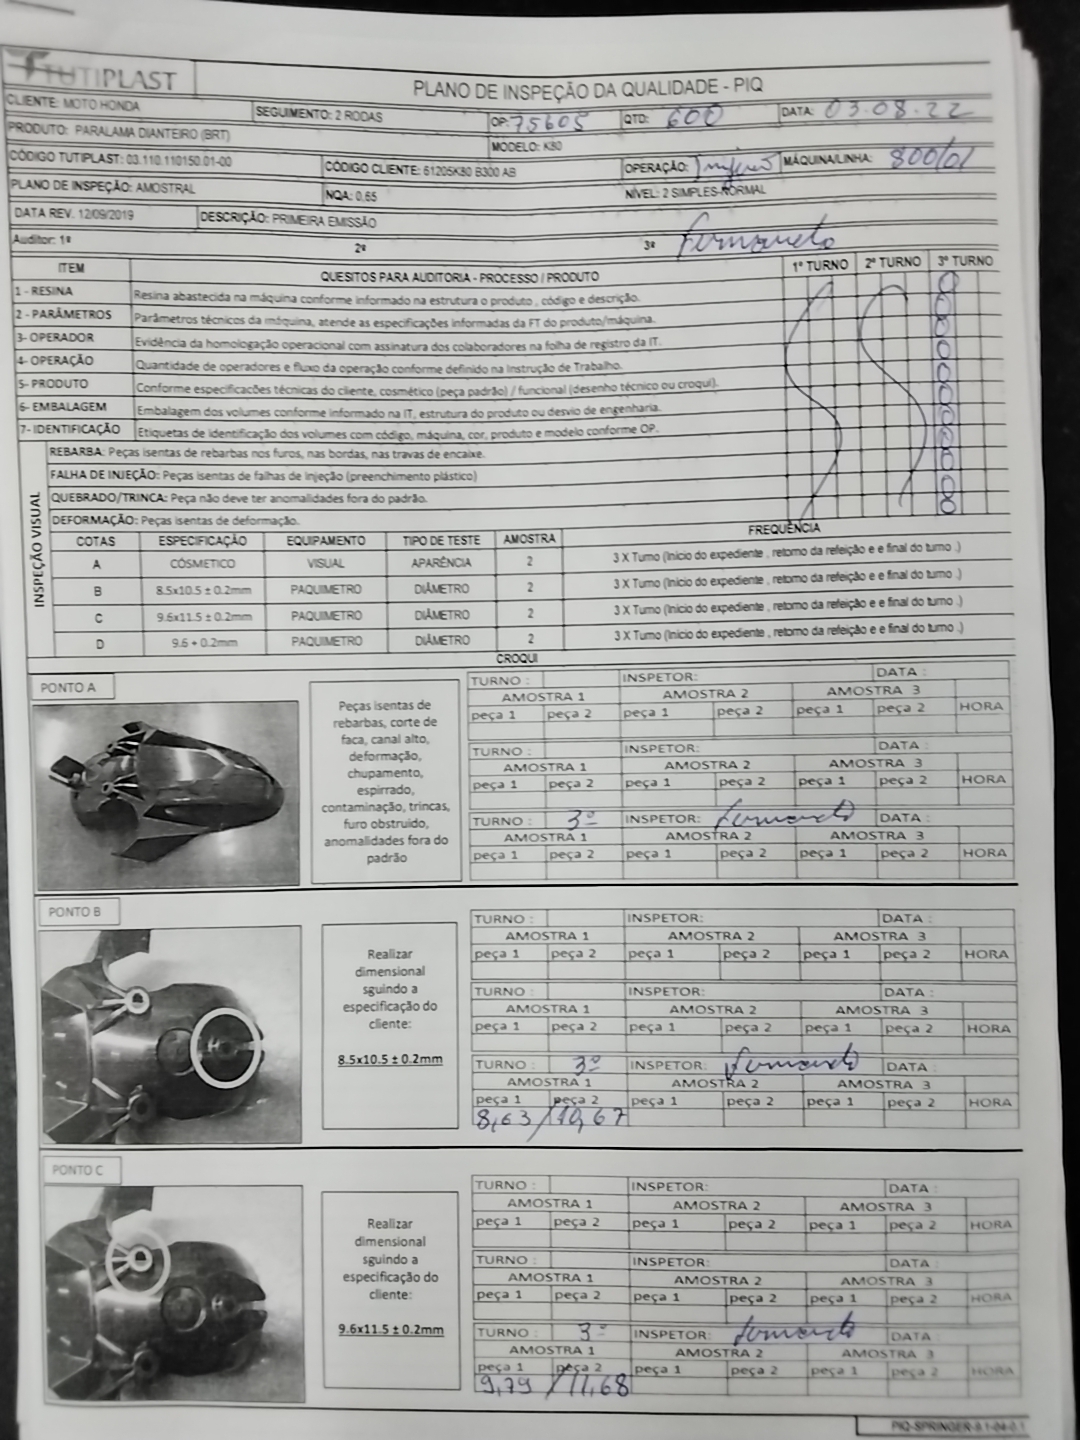 TUTIPLAST
PLANO DE INSPEÇÃO DA QUALIDADE - PIQ
CLIENTE: MOTO HONDA SEGUIMENTO: 2 RODAS OP: 75605 QTD: 600 DATA: 03.08.22
PRODUTO: PARALAMA DIANTEIRO (BRT) MODELO: K80
CÓDIGO TUTIPLAST: 03.110.110150.01-00 CÓDIGO CLIENTE: 61205K80 B300 AB OPERAÇÃO: MÁQUINA/LINHA: 800/01
PLANO DE INSPEÇÃO: AMOSTRAL NQA: 0,65 NÍVEL: 2 SIMPLES-NORMAL
DATA REV. 12/09/2019 DESCRIÇÃO: PRIMEIRA EMISSÃO
Auditor: 1ª 2ª 3ª Fernando
ITEM QUESITOS PARA AUDITORIA - PROCESSO / PRODUTO 1º TURNO 2º TURNO 3º TURNO
1 - RESINA Resina abastecida na máquina conforme informado na estrutura o produto , código e descrição.
2 - PARÂMETROS Parâmetros técnicos da máquina, atende as especificações informadas da FT do produto/máquina.
3- OPERADOR Evidência da homologação operacional com assinatura dos colaboradores na folha de registro da IT.
4- OPERAÇÃO Quantidade de operadores e fluxo da operação conforme definido na Instrução de Trabalho.
5- PRODUTO Conforme especificacões técnicas do cliente, cosmético (peça padrão) / funcional (desenho técnico ou croqui).
6- EMBALAGEM Embalagem dos volumes conforme informado na IT, estrutura do produto ou desvio de engenharia.
7- IDENTIFICAÇÃO Etiquetas de identificação dos volumes com código, máquina, cor, produto e modelo conforme OP.
INSPEÇÃO VISUAL
REBARBA: Peças isentas de rebarbas nos furos, nas bordas, nas travas de encaixe.
FALHA DE INJEÇÃO: Peças isentas de falhas de injeção (preenchimento plástico)
QUEBRADO/TRINCA: Peça não deve ter anomalidades fora do padrão.
DEFORMAÇÃO: Peças isentas de deformação.
COTAS ESPECIFICAÇÃO EQUIPAMENTO TIPO DE TESTE AMOSTRA FREQUÊNCIA
A CÓSMETICO VISUAL APARÊNCIA 2 3 X Turno (Inicio do expediente , retorno da refeição e e final do turno .)
B 8.5x10.5 ± 0.2mm PAQUIMETRO DIÂMETRO 2 3 X Turno (Inicio do expediente , retorno da refeição e e final do turno .)
C 9.6x11.5 ± 0.2mm PAQUIMETRO DIÂMETRO 2 3 X Turno (Inicio do expediente , retorno da refeição e e final do turno .)
D 9.6 + 0.2mm PAQUIMETRO DIÂMETRO 2 3 X Turno (Inicio do expediente , retorno da refeição e e final do turno .)
CROQUI
PONTO A
Peças isentas de
rebarbas, corte de
faca, canal alto,
deformação,
chupamento,
espirrado,
contaminação, trincas,
furo obstruido,
anomalidades fora do
padrão
TURNO : INSPETOR: DATA :
AMOSTRA 1 AMOSTRA 2 AMOSTRA 3
peça 1 peça 2 peça 1 peça 2 peça 1 peça 2 HORA
TURNO : INSPETOR: DATA :
AMOSTRA 1 AMOSTRA 2 AMOSTRA 3
peça 1 peça 2 peça 1 peça 2 peça 1 peça 2 HORA
TURNO : 3º INSPETOR: Fernando DATA :
AMOSTRA 1 AMOSTRA 2 AMOSTRA 3
peça 1 peça 2 peça 1 peça 2 peça 1 peça 2 HORA
PONTO B
Realizar
dimensional
sguindo a
especificação do
cliente:
8.5x10.5 ± 0.2mm
TURNO : INSPETOR: DATA :
AMOSTRA 1 AMOSTRA 2 AMOSTRA 3
peça 1 peça 2 peça 1 peça 2 peça 1 peça 2 HORA
TURNO : INSPETOR: DATA :
AMOSTRA 1 AMOSTRA 2 AMOSTRA 3
peça 1 peça 2 peça 1 peça 2 peça 1 peça 2 HORA
TURNO : 3º INSPETOR: Fernando DATA :
AMOSTRA 1 AMOSTRA 2 AMOSTRA 3
peça 1 peça 2 peça 1 peça 2 peça 1 peça 2 HORA
8,63 / 10,67
PONTO C
Realizar
dimensional
sguindo a
especificação do
cliente:
9.6x11.5 ± 0.2mm
TURNO : INSPETOR: DATA :
AMOSTRA 1 AMOSTRA 2 AMOSTRA 3
peça 1 peça 2 peça 1 peça 2 peça 1 peça 2 HORA
TURNO : INSPETOR: DATA :
AMOSTRA 1 AMOSTRA 2 AMOSTRA 3
peça 1 peça 2 peça 1 peça 2 peça 1 peça 2 HORA
TURNO : 3º INSPETOR: Fernando DATA :
AMOSTRA 1 AMOSTRA 2 AMOSTRA 3
peça 1 peça 2 peça 1 peça 2 peça 1 peça 2 HORA
9,79 / 11,68